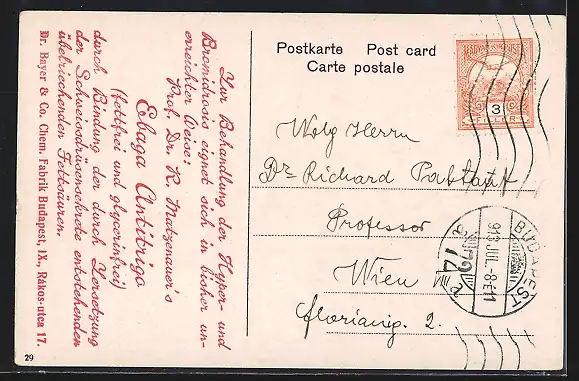 Zur Behandlung der Hyper- und
Bromidrosis eignet sich in bisher un-
erreichter Weise:
Prof. Dr. R. Matzenauer's
Ebaga Antitrigo
(fettfrei und glycerinfrei)
durch Bindung der durch Zersetzung
der Schweissdrüsensekrete entstehenden
übelriechenden Fettsäuren.
Dr. Bayer & Co. Chem. Fabrik Budapest, IX., Rákos-utca 17.
29
Postkarte Post card
Carte postale
3
FILLÉR
Wolg Herrn
Dr Richard
Professor
Wien
Florianig. 2.
BUDAPEST
913 JUL.-8.E11
72